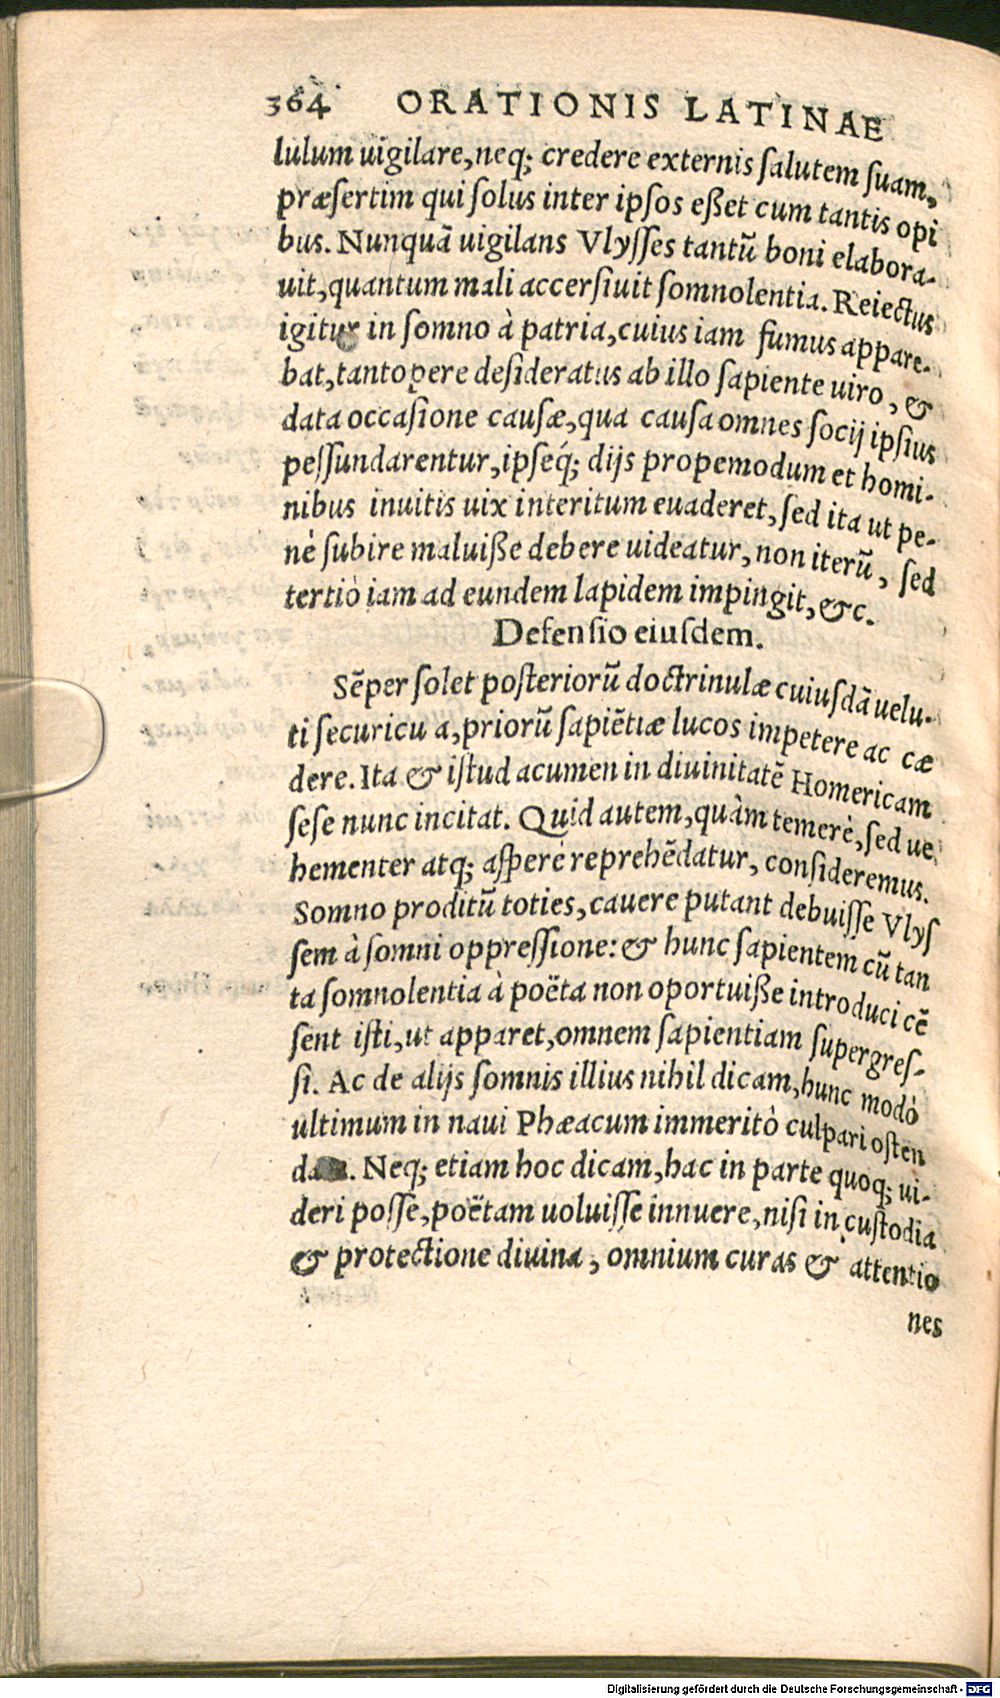 364 ORATIONIS LATINAE
lulum uigilare, neq; credere externis ſalutem ſuam,
præſertim qui ſolus inter ipſos eßet cum tantis opi
bus. Nunquã uigilans Vlyſſes tantũ boni elabora-
uit, quantum mali accerſiuit ſomnolentia. Reiectus
igitur in ſomno à patria, cuius iam fumus appare-
bat, tantopere deſideratus ab illo ſapiente uiro, &
data occaſione cauſæ, qua cauſa omnes ſocij ipſius
peſſundarentur, ipſeq́; dijs propemodum et homi-
nibus inuitis uix interitum euaderet, ſed ita ut pe-
nè ſubire maluiße debere uideatur, non iterũ, ſed
tertiò iam ad eundem lapidem impingit, &c.
Defenſio eiuſdem.
Sẽper ſolet poſteriorũ doctrinulæ cuiuſdã uelu-
ti ſecuricu a, priorũ ſapiẽtiæ lucos impetere ac cæ
dere. Ita & iſtud acumen in diuinitatẽ Homericam
ſeſe nunc incitat. Quid autem, quàm temerè, ſed ue
hementer atq; aſperè reprehẽdatur, conſideremus.
Somno proditũ toties, cauere putant debuiſſe Vlyſ
ſem à ſomni oppreſſione: & hunc ſapientem cũ tan
ta ſomnolentia à poëta non oportuiße introduci cẽ
ſent iſti, ut apparet, omnem ſapientiam ſupergreſ-
ſi. Ac de alijs ſomnis illius nihil dicam, hunc modò
ultimum in naui Phæacum immeritò culpari oſten
Neq; etiam hoc dicam, hac in parte quoq; ui-
deri poſſe, poëtam uoluiſſe innuere, niſi in cuſtodia
& protectione diuina, omnium curas & attentio
nes
Digitalisierung gefördert durch die Deutsche Forschungsgemeinschaft - DFG